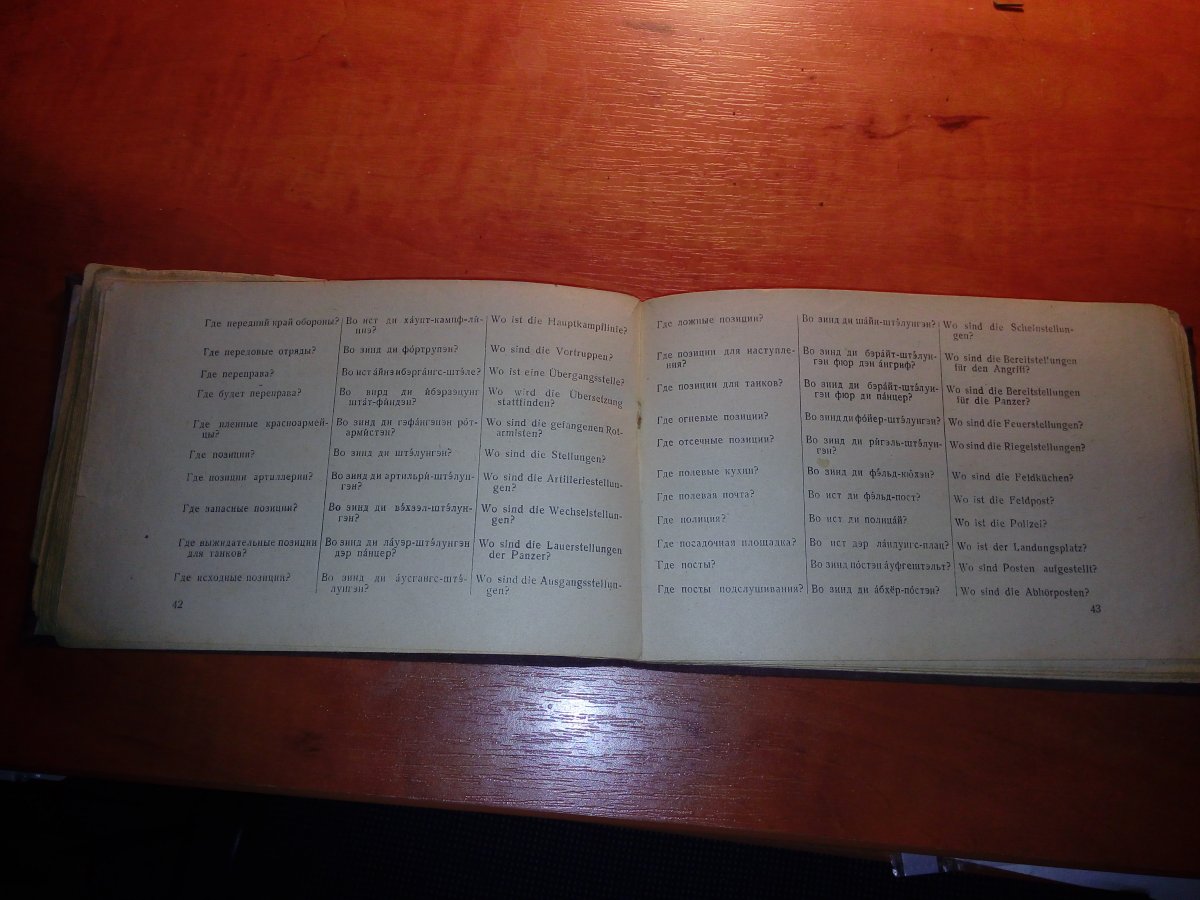 Где передний край обороны? Во ист ди ха́упт-кампф-ли́- Wo ist die Hauptkampflinie?
ниэ?
Где передовые отряды? Во зинд ди фо́ртрупэн? Wo sind die Vortruppen?
Где переправа? Во ист а́йнэ и́бэрга́нгс-штэ́лe? Wo ist eine Übergangsstelle?
Где будет переправа? Во вирд ди и́бэрзэцунг Wo wird die Übersetzung
шта́т-финдэн? stattfinden?
Где пленные красноармей- Во зинд ди гэфа́нгэнэн ро́т- Wo sind die gefangenen Rot-
цы? арми́стэн? armisten?
Где позиции? Во зинд ди штэ́лунгэн? Wo sind die Stellungen?
Где позиции артиллерии? Во зинд ди артильри́-штэ́лун- Wo sind die Artilleriestellun-
гэн? gen?
Где запасные позиции? Во зинд ди вэ́хзэл-штэ́лун- Wo sind die Wechselstellun-
гэн? gen?
Где выжидательные позиции Во зинд ди ла́уэр-штэ́лунгэн Wo sind die Lauerstellungen
для танков? дэр па́нцер? der Panzer?
Где исходные позиции? Во зинд ди а́усгангс-штэ́- Wo sind die Ausgangsstellun-
лунгэн? gen?
42
Где ложные позиции? Во зинд ди ша́йн-штэ́лунгэн? Wo sind die Scheinstellun-
gen?
Где позиции для наступле- Во зинд ди бэра́йт-штэ́лун- Wo sind die Bereitstellungen
ния? гэн фюр дэн а́нгриф? für den Angriff?
Где позиции для танков? Во зинд ди бэра́йт-штэ́лун- Wo sind die Bereitstellungen
гэн фюр ди па́нцер? für die Panzer?
Где огневые позиции? Во зинд ди фо́йер-штэ́лунгэн? Wo sind die Feuerstellungen?
Где отсечные позиции? Во зинд ди ри́гэль-штэ́лун- Wo sind die Riegelstellungen?
гэн?
Где полевые кухни? Во зинд ди фэ́льд-кю́хэн? Wo sind die Feldküchen?
Где полевая почта? Во ист ди фэ́льд-пост? Wo ist die Feldpost?
Где полиция? Во ист ди полица́й? Wo ist die Polizei?
Где посадочная площадка? Во ист дэр ла́ндунгс-плац? Wo ist der Landungsplatz?
Где посты? Во зинд по́стэн а́уфгештэльт? Wo sind Posten aufgestellt?
Где посты подслушивания? Во зинд ди а́бхёр-по́стэн? Wo sind die Abhörposten?
43